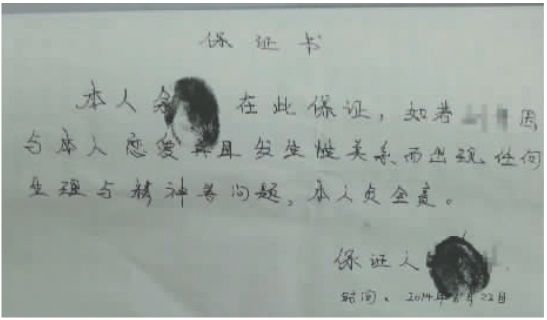 保证书
本人余 在此保证，如若 因
与本人恋爱并且发生性关系而出现任何
生理与精神等问题，本人负全责。
保证人
时间：2014年 月22日